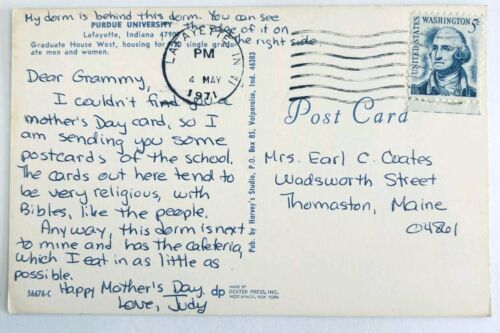 My dorm is behind this dorm. You can see
the edge of it on
the right side
PURDUE UNIVERSITY
Lafayette, Indiana 4790
Graduate House West, housing for single gradu-
ate men and women.
LAFAYETTE, IN
PM
4 MAY
1971
5c
WASHINGTON
UNITED STATES
Dear Grammy,
I couldn't find a
mother's Day card, so I
am sending you some
postcards of the school.
The cards out here tend to
be very religious, with
Bibles, like the people.
Anyway, this dorm is next
to mine and has the cafeteria,
which I eat in as little as
possible.
Happy Mother's Day.
Love, Judy
56676-C
Pub. by Harvey's Studio, P.O. Box 85, Valparaiso, Ind. 46383
dp
MADE BY
DEXTER PRESS, INC.
WEST NYACK, NEW YORK
Post Card
Mrs. Earl C. Coates
Wadsworth Street
Thomaston, Maine
04861